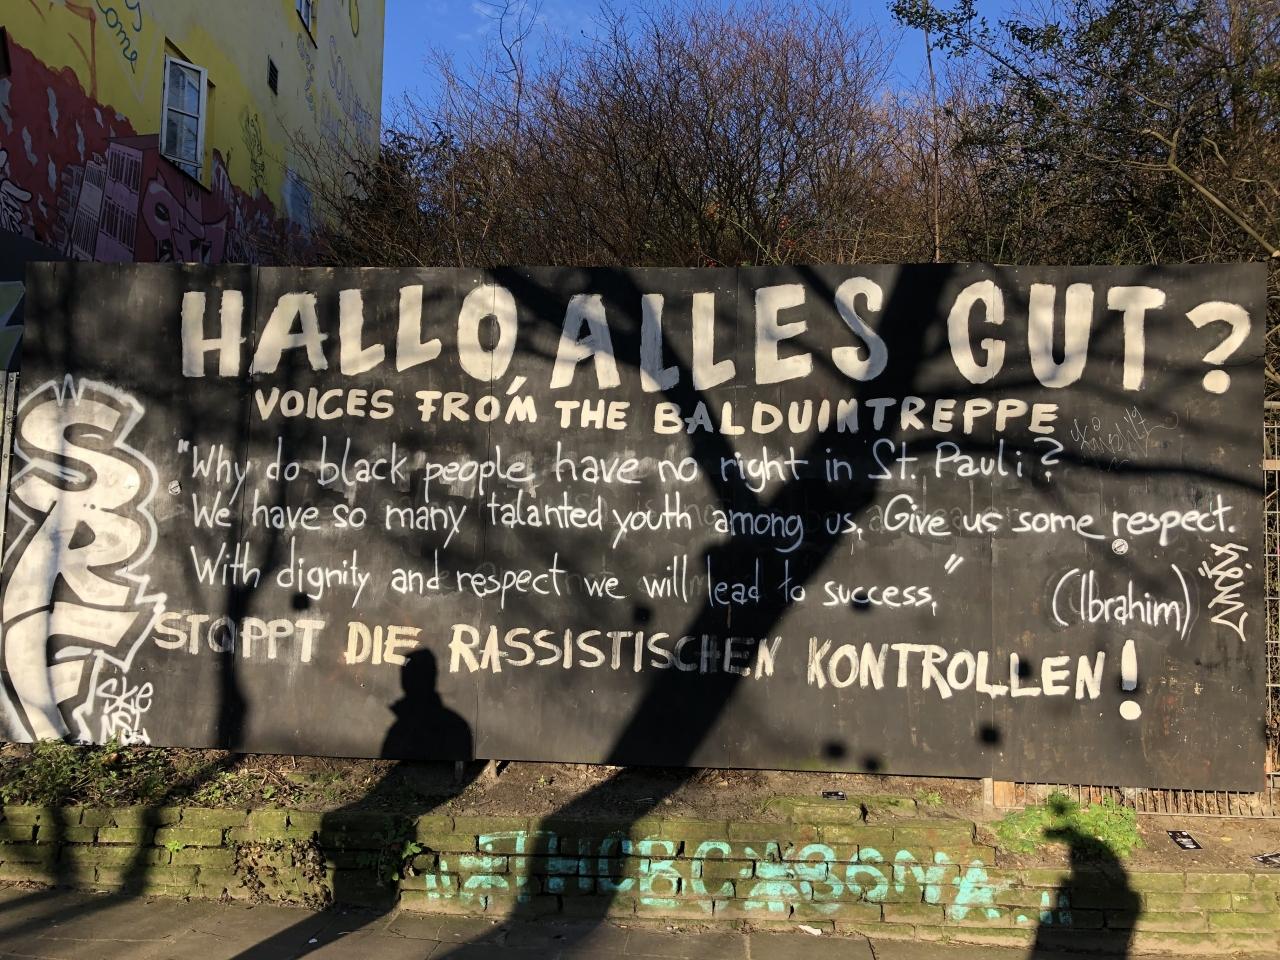 HALLO, ALLES GUT?
VOICES FROM THE BALDUINTREPPE
"Why do black people have no right in St. Pauli?
We have so many talanted youth among us. Give us some respect.
With dignity and respect we will lead to success."
(Ibrahim)
STOPPT DIE RASSISTISCHEN KONTROLLEN!
SRF
SKE